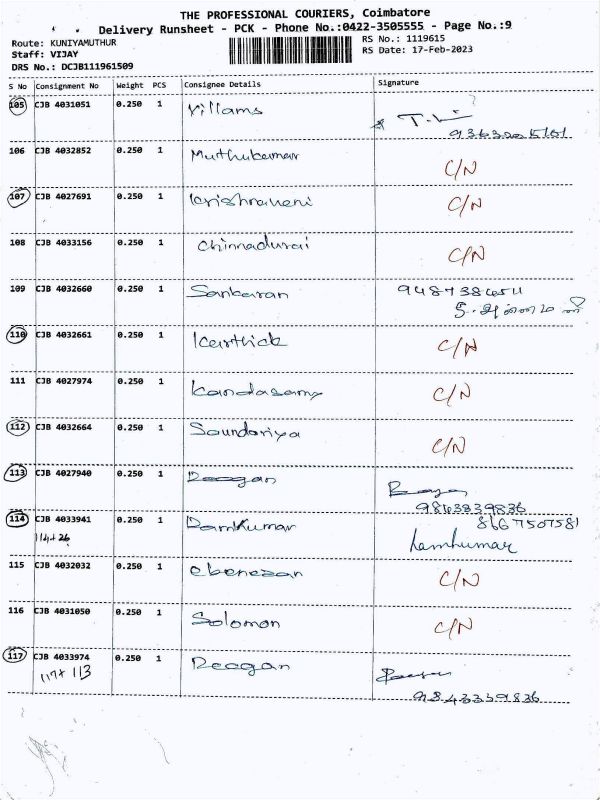 THE PROFESSIONAL COURIERS, Coimbatore
Delivery Runsheet - PCK - Phone No.:0422-3505555 - Page No.:9
Route: KUNIYAMUTHUR
RS No.: 1119615
Staff: VIJAY
RS Date: 17-Feb-2023
DRS No.: DCJB111961509
S No Consignment No Weight PCS Consignee Details Signature
105 CJB 4031051 0.250 1 Villams
106 CJB 4032852 0.250 1 Muthukumar C/N
107 CJB 4027691 0.250 1 Krishnaveni C/N
108 CJB 4033156 0.250 1 Chinnadurai C/N
109 CJB 4032660 0.250 1 Sankaran
110 CJB 4032661 0.250 1 Karthick C/N
111 CJB 4027974 0.250 1 Kandasamy C/N
112 CJB 4032664 0.250 1 Soundariya C/N
113 CJB 4027940 0.250 1 Reegan
9843339836
114 CJB 4033941 0.250 1 Ramkumar 8667507581
114+26 Ramkumar
115 CJB 4032032 0.250 1 ebenezan C/N
116 CJB 4031050 0.250 1 Solomon C/N
117 CJB 4033974 0.250 1 Reegan
117+113
9843339836